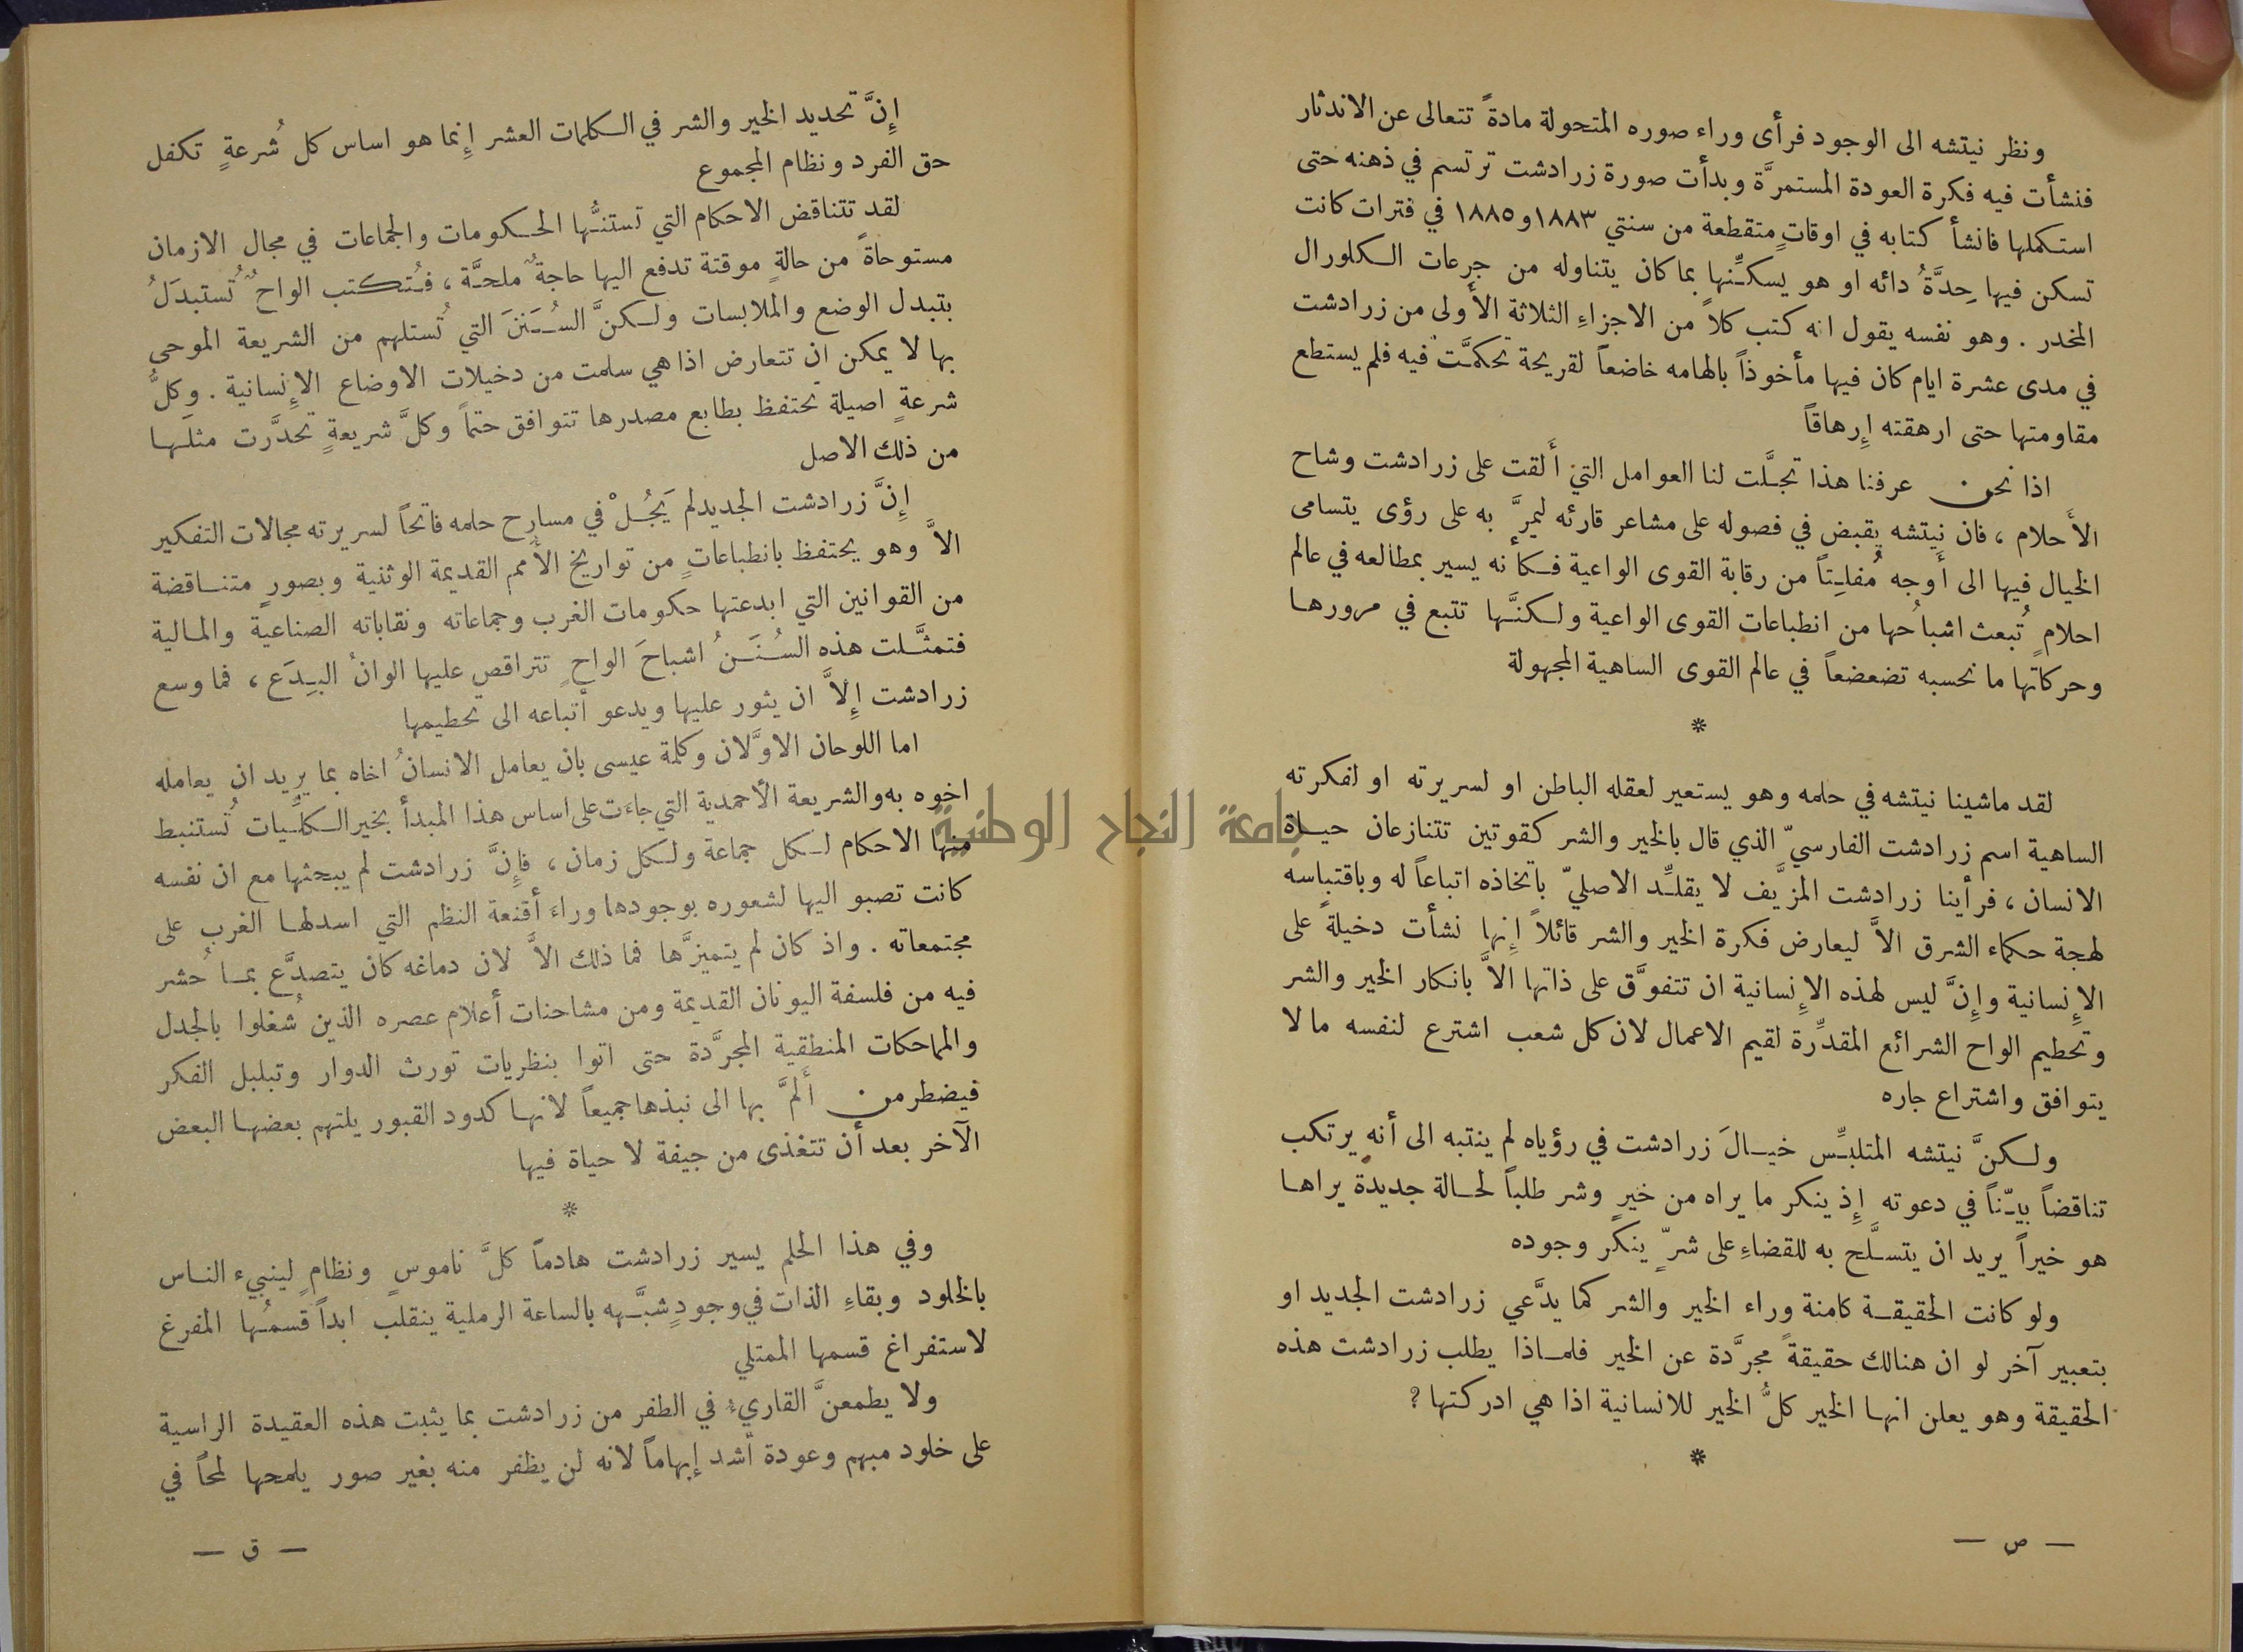 ونظر نيتشه الى الوجود فرأى وراء صوره المتحولة مادةً تتعالى عن الاندثار
فنشأت فيه فكرة العودة المستمرَّة وبدأت صورة زرادشت ترتسم في ذهنه حتى
استكملها فانشأ كتابه في اوقاتٍ متقطعة من سنتي ١٨٨٣ و١٨٨٥ في فترات كانت
تسكن فيها حِدَّةُ دائه او هو يسكِّنها بما كان يتناوله من جرعات الكلورال
المخدر . وهو نفسه يقول انه كتب كلاً من الاجزاءِ الثلاثة الأولى من زرادشت
في مدى عشرة ايام كان فيها مأخوذاً بالهامه خاضعاً لقريحة تحكمَّت فيه فلم يستطع
مقاومتها حتى ارهقته إِرهاقاً
اذا نحن عرفنا هذا تجلَّت لنا العوامل التي أَلقت على زرادشت وشاح
الأَحلام ، فان نيتشه يقبض في فصوله على مشاعر قارئه ليمرَّ به على رؤى يتسامى
الخيال فيها الى أَوجه مُفلِتاً من رقابة القوى الواعية فكأنه يسير بمطالعه في عالم
احلامٍ تُبعث اشباحُها من انطباعات القوى الواعية ولكنَّها تتبع في مرورها
وحركاتها ما نحسبه تضعضعاً في عالم القوى الساهية المجهولة
*
لقد ماشينا نيتشه في حلمه وهو يستعير لعقله الباطن او لسريرته او لفكرته
الساهية اسم زرادشت الفارسيّ الذي قال بالخير والشر كقوتين تتنازعان حياة
الانسان ، فرأينا زرادشت المزيَّف لا يقلِّد الاصليّ باتخاذه اتباعاً له وباقتباسه
لهجة حكماء الشرق الاَّ ليعارض فكرة الخير والشر قائلاً إِنها نشأت دخيلةً على
الإِنسانية وإِنَّ ليس لهذه الإِنسانية ان تتفوَّق على ذاتها الاَّ بانكار الخير والشر
وتحطيم الواح الشرائع المقدِّرة لقيم الاعمال لان كل شعب اشترع لنفسه ما لا
يتوافق واشتراع جاره
ولكنَّ نيتشه المتلبِّس خيالَ زرادشت في رؤياه لم ينتبه الى أنه يرتكب
تناقضاً بيّناً في دعوته إِذ ينكر ما يراه من خيرٍ وشر طلباً لحالة جديدة يراها
هو خيراً يريد ان يتسلَّح به للقضاءِ على شرّ ينكر وجوده
ولو كانت الحقيقة كامنة وراء الخير والشر كما يدَّعي زرادشت الجديد او
بتعبير آخر لو ان هنالك حقيقةً مجرَّدة عن الخير فلماذا يطلب زرادشت هذه
الحقيقة وهو يعلن انها الخير كلُّ الخير للانسانية اذا هي ادركتها ؟
*
— ص —
إِنَّ تحديد الخير والشر في الكلمات العشر إِنما هو اساس كل شُرعةٍ تكفل
حق الفرد ونظام المجموع
لقد تتناقض الاحكام التي تستنُّها الحكومات والجماعات في مجال الازمان
مستوحاةً من حالةٍ موقتة تدفع اليها حاجةٌ ملحَّة ، فتُكتب الواحٌ تُستبدَلُ
بتبدل الوضع والملابسات ولكنَّ السُنَنَ التي تُستلهم من الشريعة الموحى
بها لا يمكن ان تتعارض اذا هي سلمت من دخيلات الاوضاع الإِنسانية . وكلُّ
شرعةٍ اصيلة تحتفظ بطابع مصدرها تتوافق حتماً وكلَّ شريعةٍ تحدَّرت مثلَها
من ذلك الاصل
إِنَّ زرادشت الجديد لم يَجُلْ في مسارح حلمه فاتحاً لسريرته مجالات التفكير
الاَّ وهو يحتفظ بانطباعاتٍ من تواريخ الأمم القديمة الوثنية وبصورٍ متناقضة
من القوانين التي ابدعتها حكومات الغرب وجماعاته ونقاباته الصناعية والمالية
فتمثَّلت هذه السُنَنُ اشباحَ الواحٍ تتراقص عليها الوانُ البِدَع ، فما وسع
زرادشت إِلاَّ ان يثور عليها ويدعو أتباعه الى تحطيمها
اما اللوحان الاوَّلان وكلمة عيسى بان يعامل الانسانُ اخاه بما يريد ان يعامله
اخوه به والشريعة الأحمدية التي جاءت على اساس هذا المبدأ بخير الكلّيات تُستنبط
منها الاحكام لكل جماعة ولكل زمان ، فإِنَّ زرادشت لم يبحثها مع ان نفسه
كانت تصبو اليها لشعوره بوجودها وراء أقنعة النظم التي اسدلها الغرب على
مجتمعاته . واذ كان لم يتميزَّها فما ذلك الاَّ لان دماغه كان يتصدَّع بما حُشر
فيه من فلسفة اليونان القديمة ومن مشاحنات أعلام عصره الذين شُغلوا بالجدل
والمماحكات المنطقية المجرَّدة حتى اتوا بنظريات تورث الدوار وتبلبل الفكر
فيضطر من أَلمَّ بها الى نبذها جميعاً لانها كدود القبور يلتهم بعضها البعض
الآخر بعد أن تتغذى من جيفة لا حياة فيها
*
وفي هذا الحلم يسير زرادشت هادماً كلَّ ناموسٍ ونظامٍ لينبيء الناس
بالخلود وبقاءِ الذات في وجودٍ شبَّهه بالساعة الرملية ينقلب ابداً قسمُها المفرغ
لاستفراغ قسمها الممتلي
ولا يطمعنَّ القاريءُ في الظفر من زرادشت بما يثبت هذه العقيدة الراسية
على خلود مبهم وعودة أشد إبهاماً لانه لن يظفر منه بغير صور يلمحها لمحاً في
— ق —
جامعة النجاح الوطنية